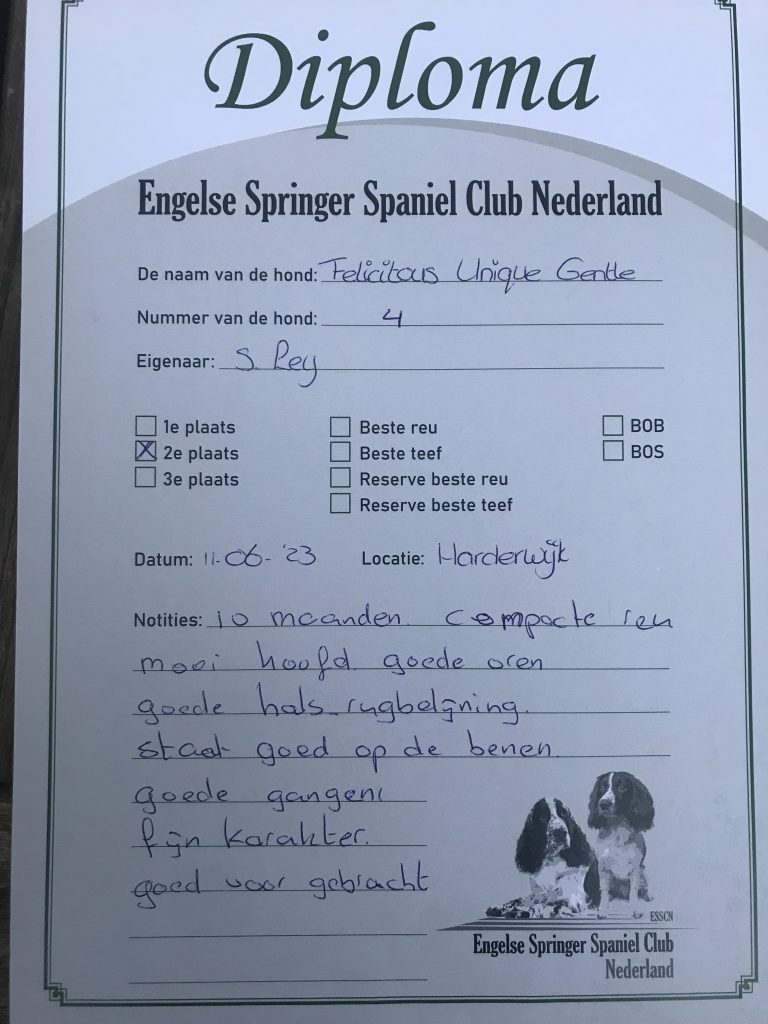 Diploma
Engelse Springer Spaniel Club Nederland
De naam van de hond: Felicitous Unique Gentle
Nummer van de hond: 4
Eigenaar: S. Pey
1e plaats Beste reu BOB
2e plaats Beste teef BOS
3e plaats Reserve beste reu
Reserve beste teef
Datum: 11-06-'23 Locatie: Harderwijk
Notities: 10 maanden. compacte reu
mooi hoofd. goede oren
goede hals-rugbelijning.
staat goed op de benen.
goede gangen
fijn karakter.
goed voor gebracht
ESSCN
Engelse Springer Spaniel Club
Nederland